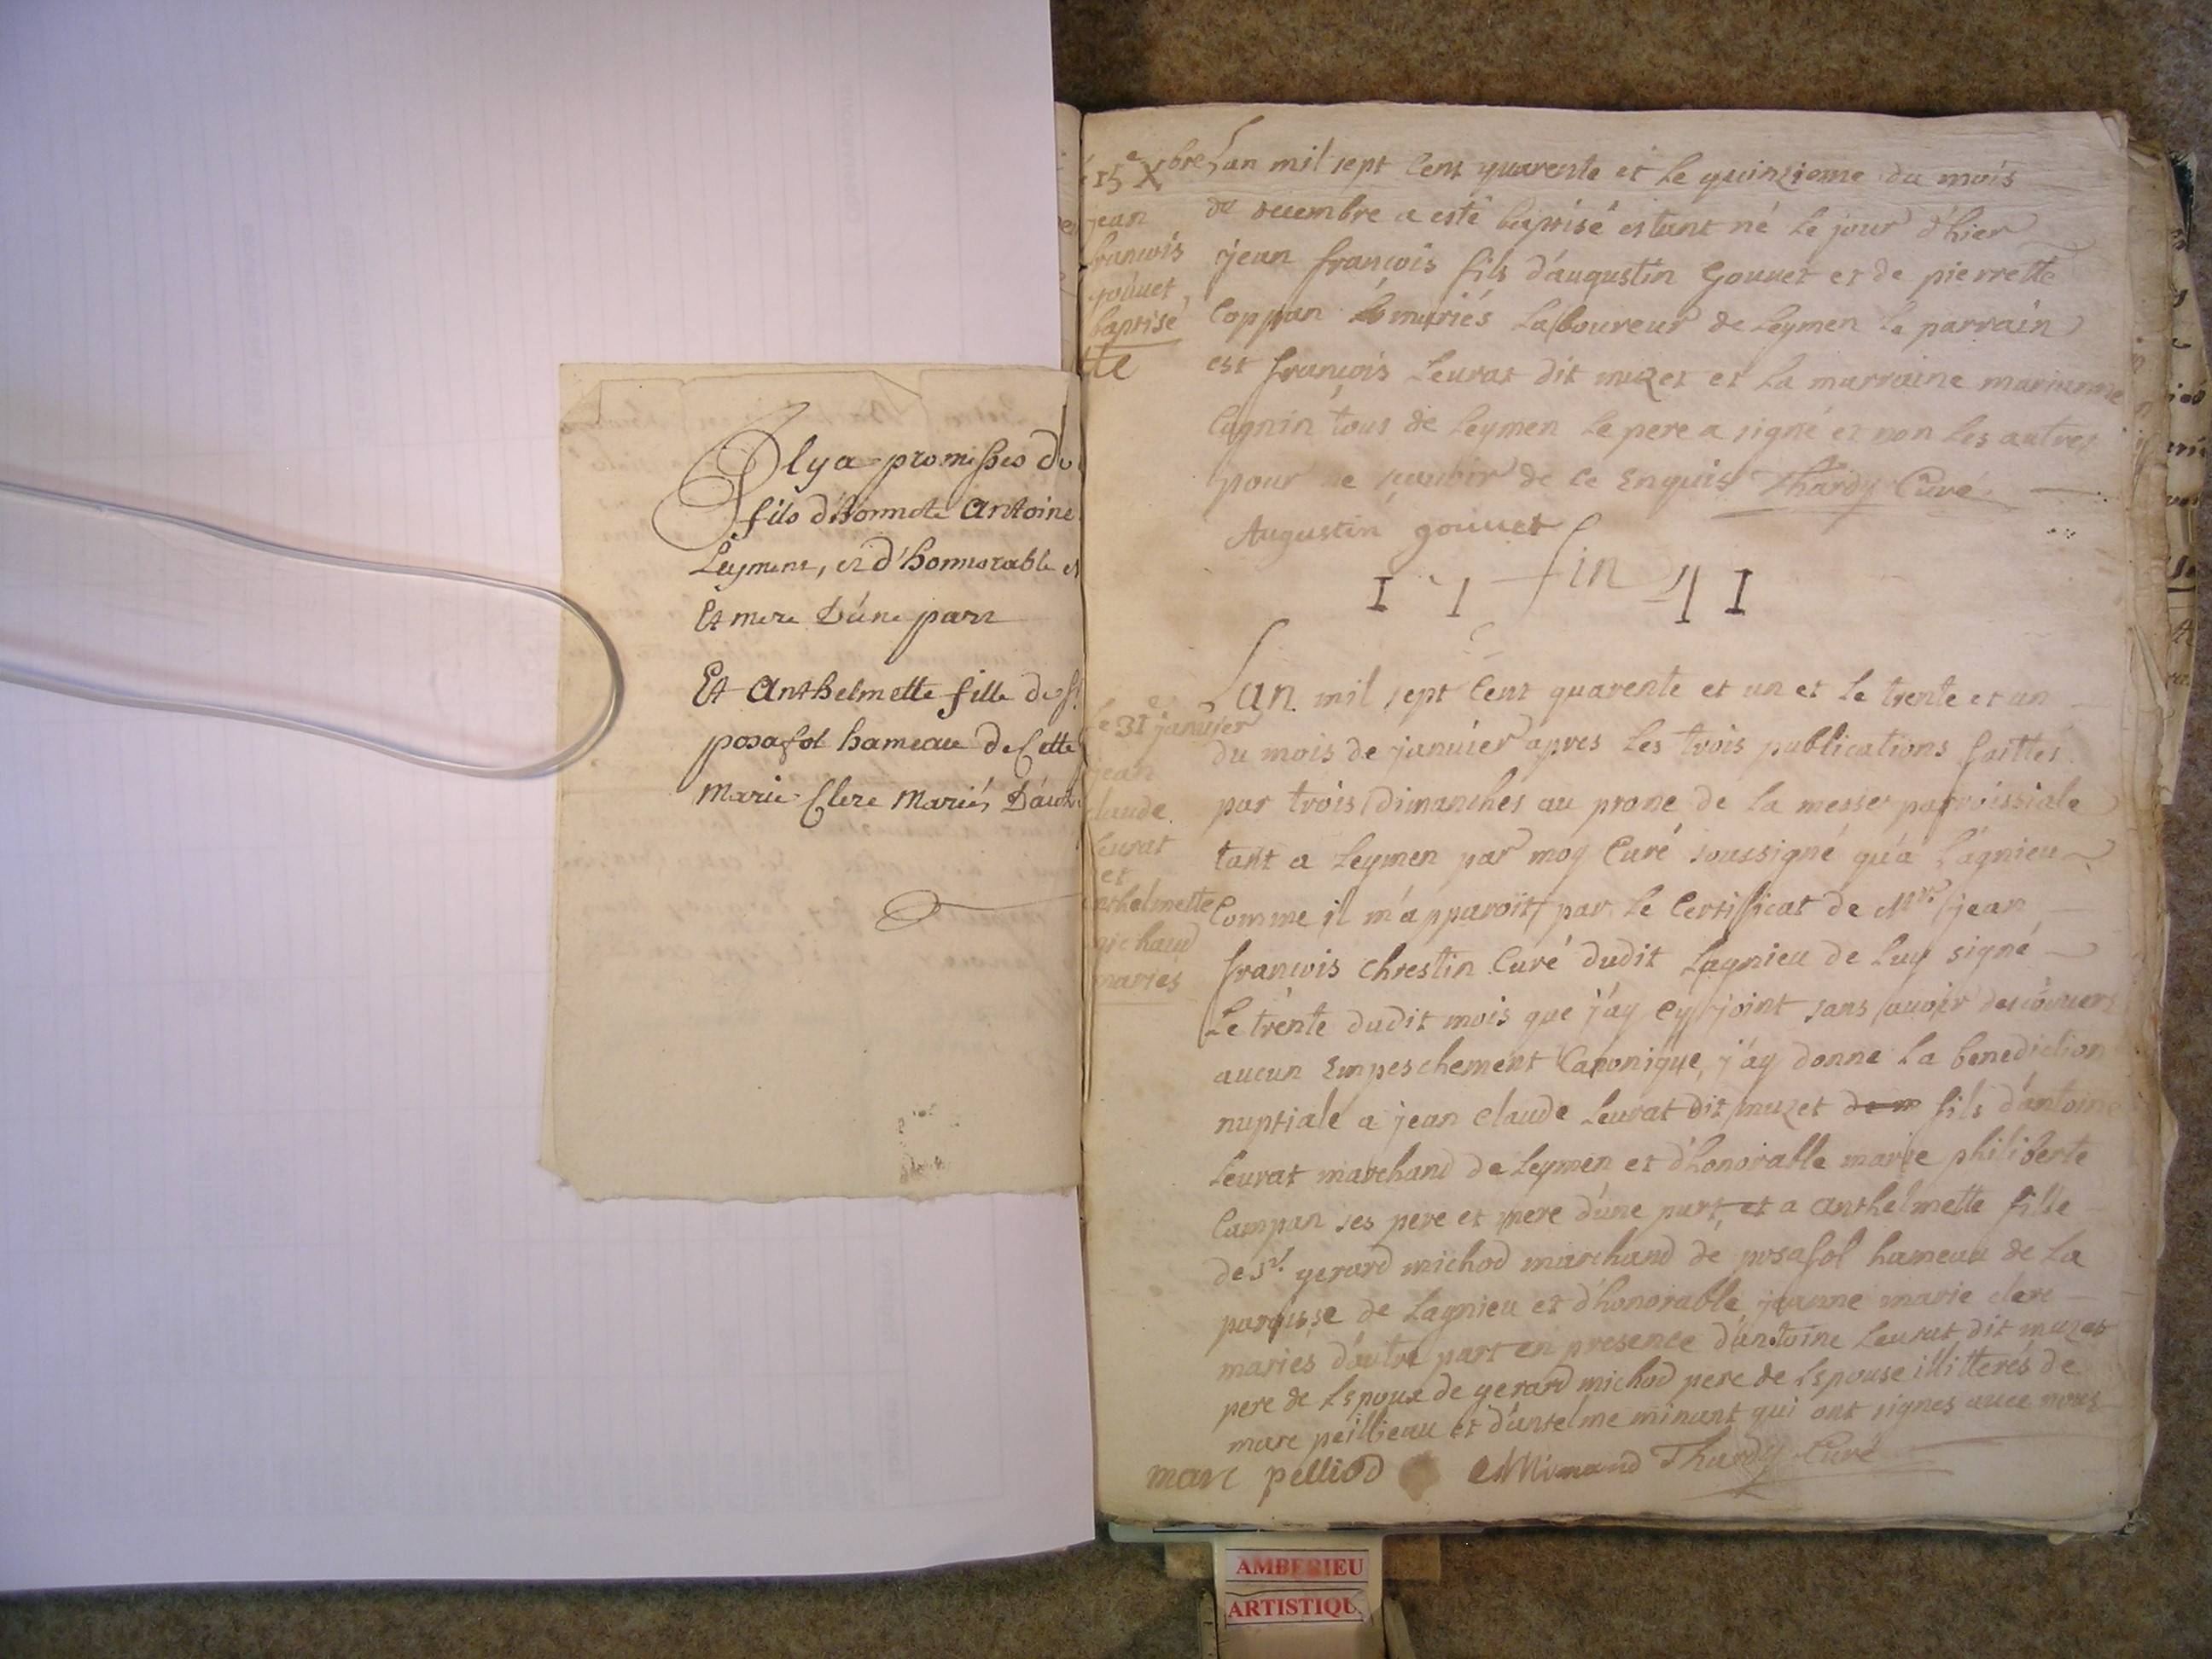 Il y a promisses de
fils d'honnete Antoine
Leymens, et d'honnorable
Et mere D'une part
Et Anthelmette fille de
posafol hameau de Cette
Marie Clere Mariés D'autr
15e Xbre
jean
francois
gouuet
baptisé
tte
Lan mil sept Cent quarente et Le quinzieme du mois
de decembre a esté baptisé estant né Le jour d'hier
jean françois fils d'augustin Gouuet et de pierrette
Coppan mariés Laboureur de Leymen Le parrain
est françois Leurat dit muzet et La marraine marianne
Cagnin tous de Leymen Le pere a signé et non Les autres
pour ne scauoir de ce Enquis Thardy Curé
Augustin gouuet
fin
1 7 4 1
Le 31e januier
jean
claude
Leurat
et
anthelmette
michaud
mariés
Lan mil sept Cent quarente et un et Le trente et un
du mois de januier apres Les trois publications faittes
par trois dimanches au prone de La messe parroissiale
tant a Leymen par moy Curé soussigné qu'a Lagnieu
Comme il m'apparoit par Le Certificat de Mre jean
françois Chrestin Curé dudit Lagnieu de Luy signé
Le trente dudit mois que j'ay Cy joint sans auoir descouuert
aucun Empeschement Canonique, j'ay donne La benediction
nuptiale a jean Claude Leurat dit muzet fils d'antoine
Leurat marchand de Leymen et d'honorable marie philiberte
Campan ses pere et mere d'une part, et a anthelmette fille
de Sr. gerard michod marchand de posafol hameau de La
paroisse de Lagnieu et d'honorable jeanne marie clere
maries d'autre part en presence d'antoine Leurat dit muzet
pere de Lepoux de gerard michod pere de Lspouse illitterés de
marc peillieau et d'antelme minant qui ont signes auec nous
marc pelliod Mimand Thardy Curé
AMBERIEU
ARTISTIQU